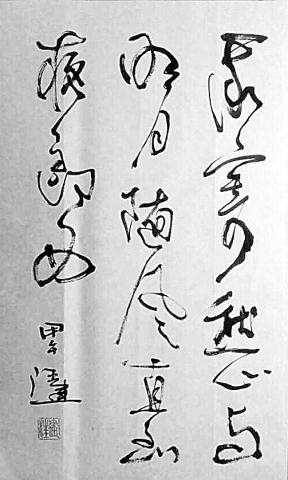 我寄愁心与
明月随风直到
夜郎西
甲午